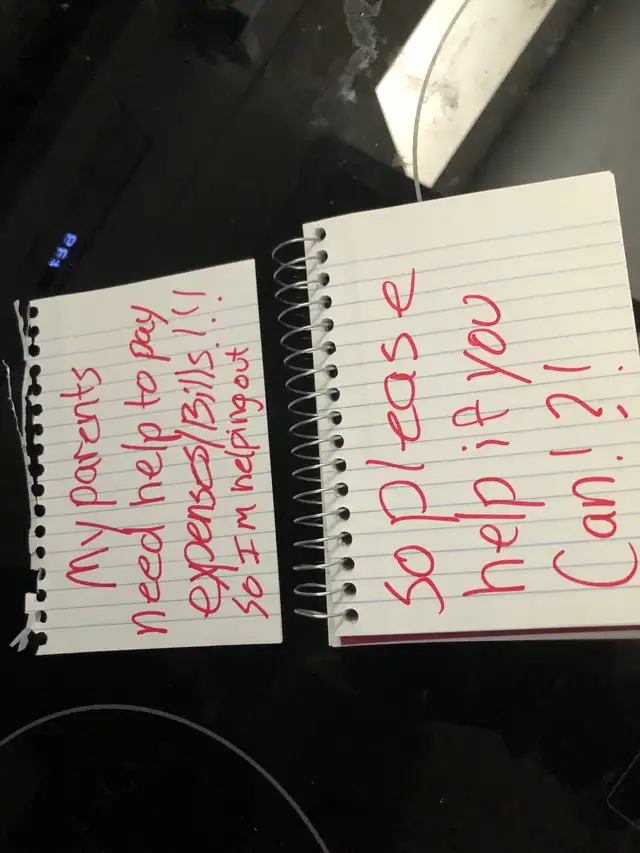 My parents
need help to pay
expenses/Bills!!!
so I'm helping out
so please
help if you
Can!?!